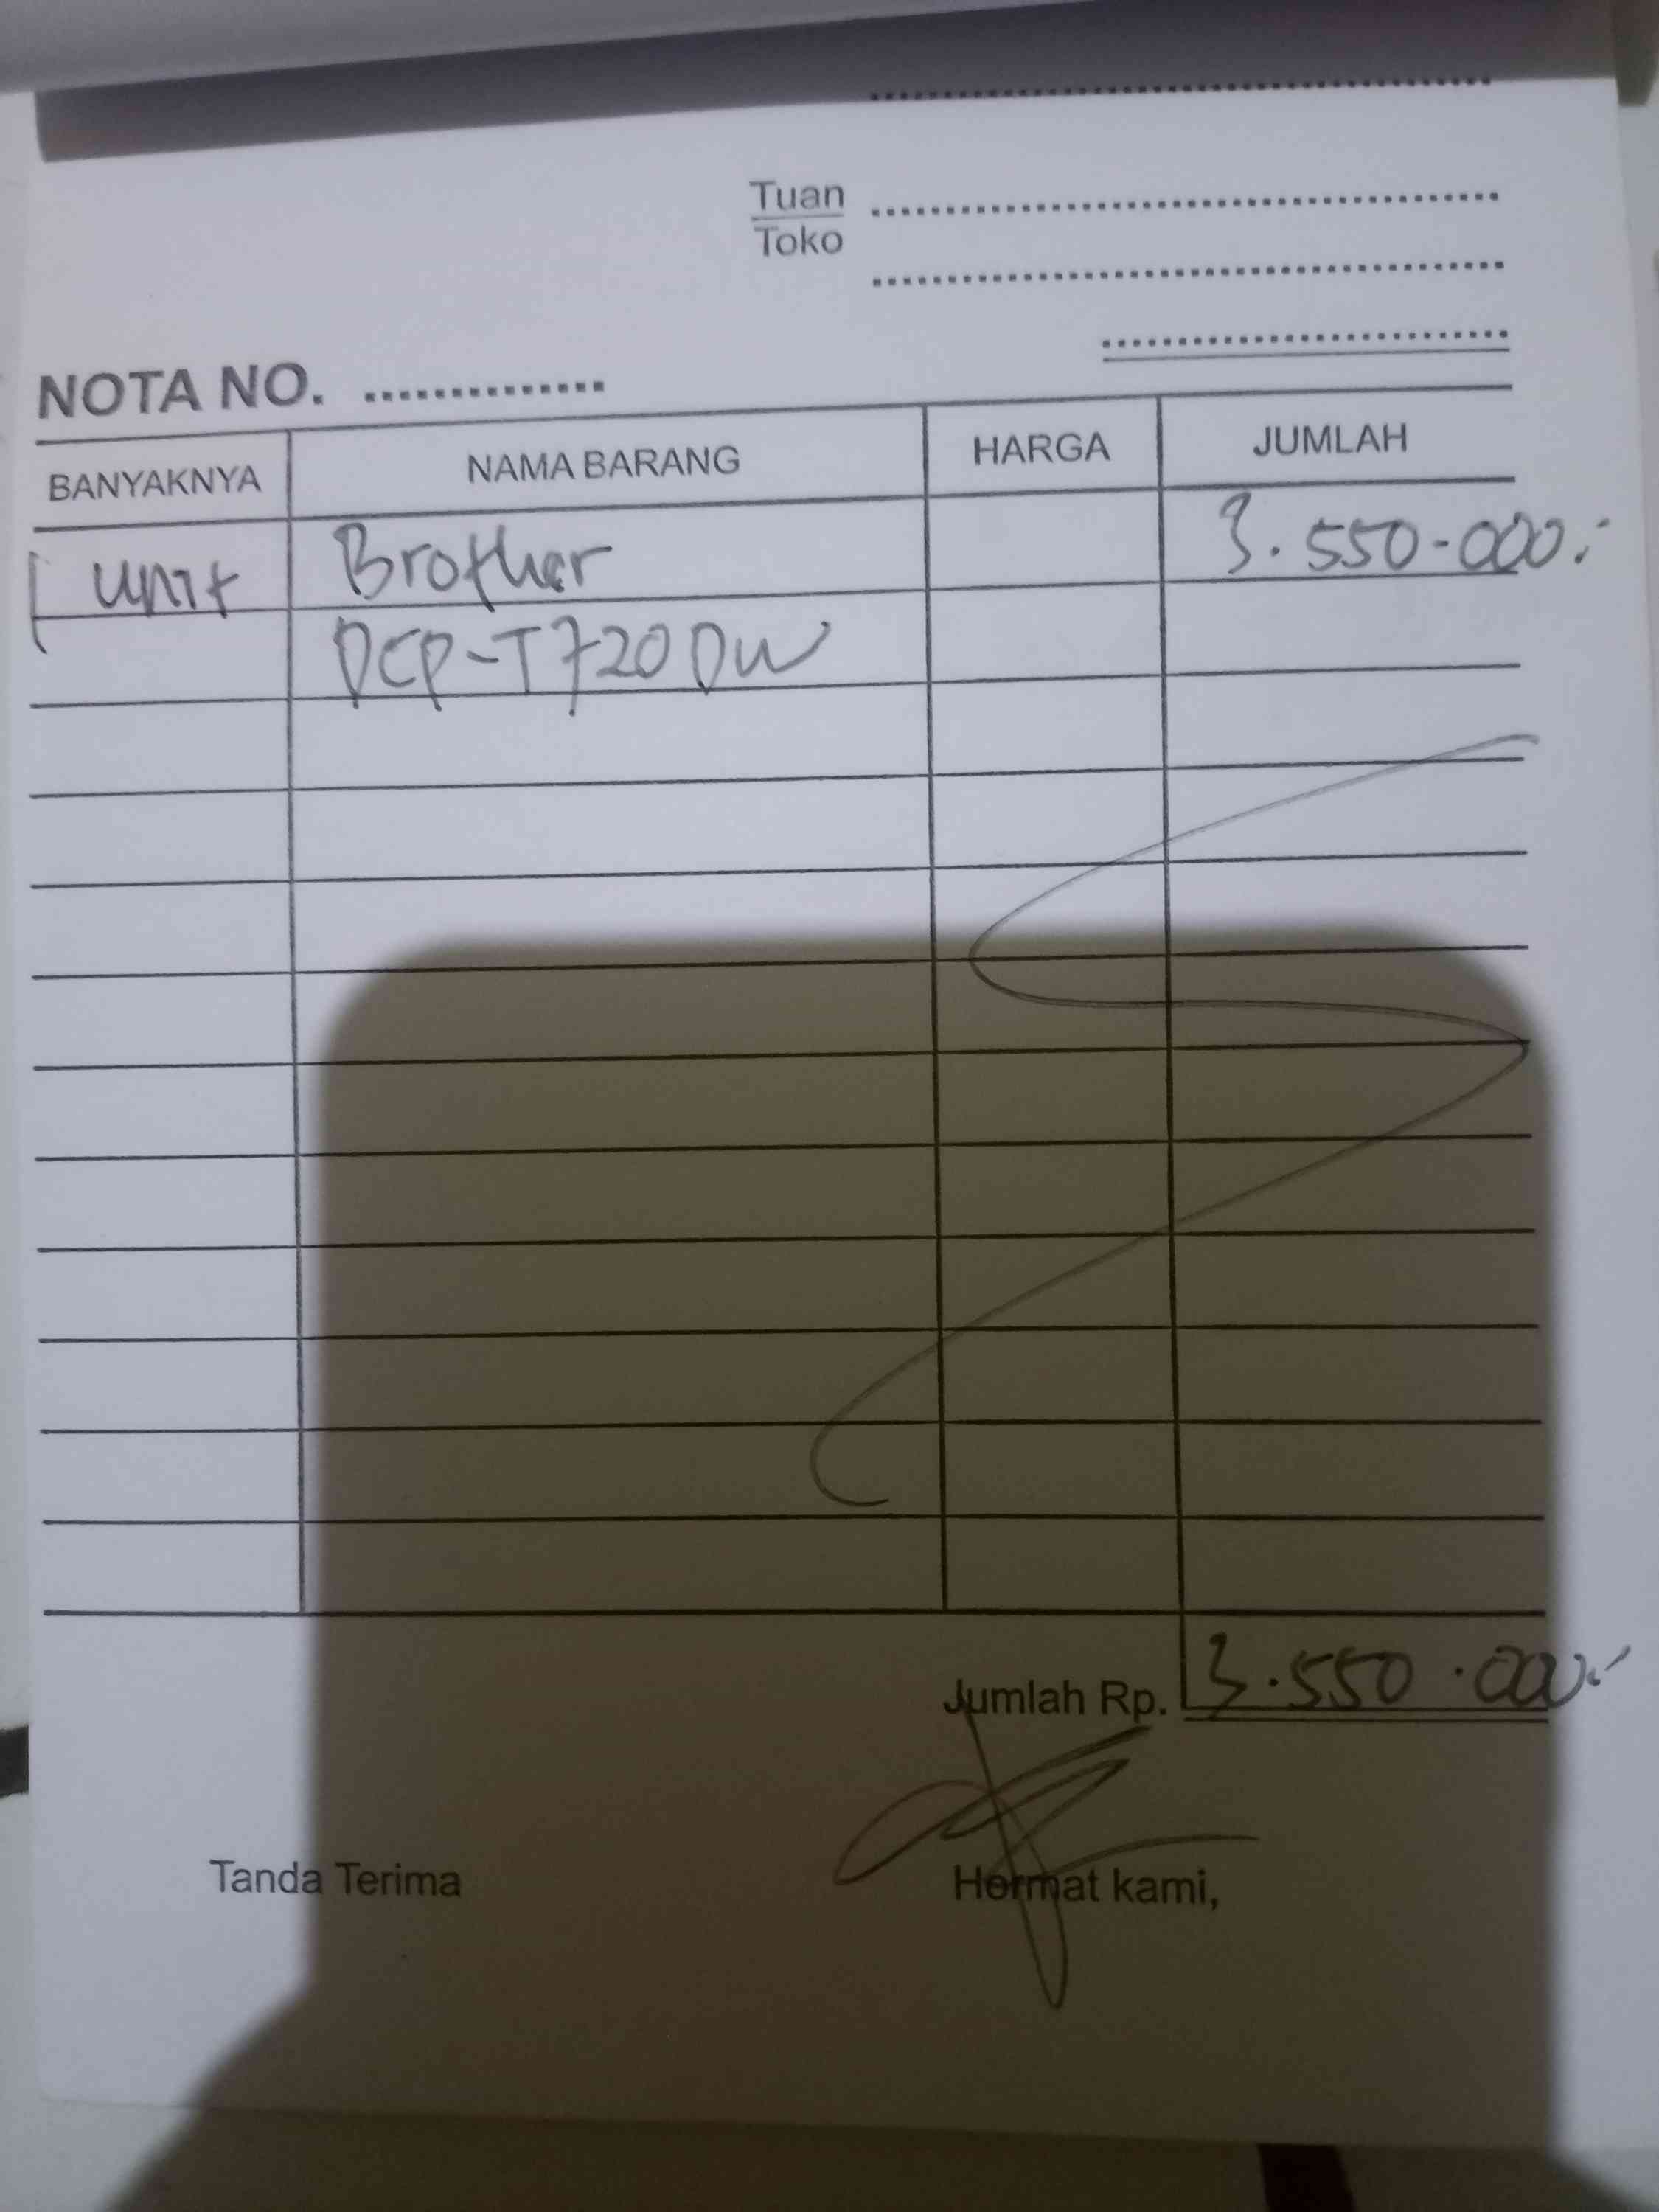 Tuan
Toko
NOTA NO. ..............
BANYAKNYA NAMA BARANG HARGA JUMLAH
1 unit Brother 3.550.000.-
DCP-T720DW
Jumlah Rp. 3.550.000.-
Tanda Terima Hormat kami,